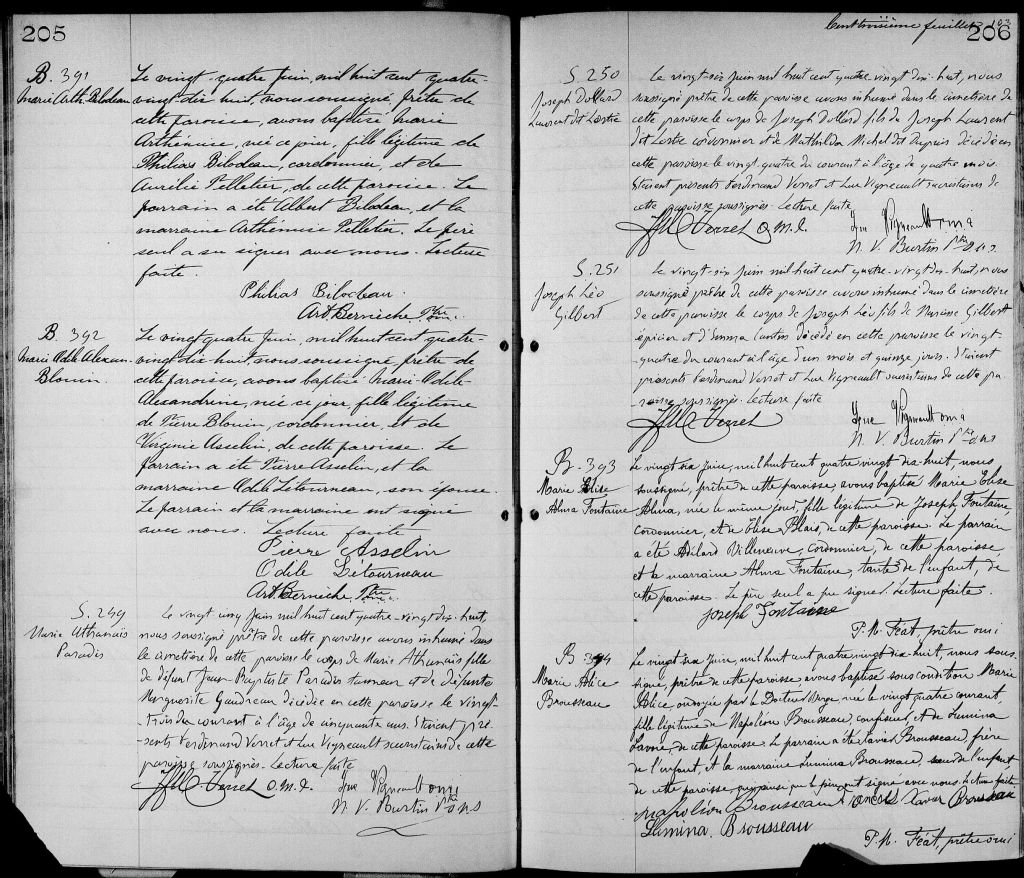 205
B. 391
Marie Arth. Bilodeau
Le vingt-quatre Juin, mil huit cent quatre-
vingt-dix huit, nous soussigné prêtre de
cette paroisse, avons baptisé Marie
Arthémise, née ce jour, fille légitime de
Philias Bilodeau, cordonnier, et de
Aurélie Pelletier, de cette paroisse. Le
parrain a été Albert Bilodeau, et la
marraine Arthémise Pelletier. Le père
seul a su signer avec nous. Lecture
faite.
Philias Bilodeau.
Art. Bernèche Ptre
B. 392
Marie Odile Alexan.
Blouin.
Le vingt quatre Juin, mil huit cent quatre-
vingt-dix huit, nous soussigné, prêtre de
cette paroisse, avons baptisé Marie-Odile-
Alexandrine, née ce jour, fille légitime
de Pierre Blouin, cordonnier, et de
Virginie Asselin, de cette paroisse. Le
parrain a été Pierre Asselin, et la
marraine Odile Létourneau, son épouse.
Le parrain et la marraine ont signé
avec nous. Lecture faite
Pierre Asselin
Odile Létourneau
Art. Bernèche Ptre
S. 249
Marie Athanaïs
Paradis
Le vingt cinq Juin mil huit cent quatre-vingt-dix-huit,
nous soussigné prêtre de cette paroisse avons inhumé dans
le cimetière de cette paroisse le corps de Marie Athanaïs fille
de défunt Jean-Baptiste Paradis tanneur et de défunte
Marguerite Gaudreau décédée en cette paroisse le vingt-
trois du courant à l'âge de cinquante ans. Etaient pré-
sents Ferdinand Verret et Luc Vigneault sacristains de cette
paroisse soussignés. Lecture faite
Verret O.M.I. Luc Vigneault omi
N. V. Burtin Ptre oms
Cent troisième feuillet 103
206
S. 250
Joseph Dollard
Laurent dit Lortie
Le vingt-six Juin mil huit cent quatre-vingt dix-huit, nous
soussigné prêtre de cette paroisse avons inhumé dans le cimetière de
cette paroisse le corps de Joseph Dollard fils de Joseph Laurent
dit Lortie cordonnier et de Mathilda Michel dit Dupuis décédé en
cette paroisse le vingt-quatre du courant à l'âge de quatre mois.
Etaient présents Ferdinand Verret et Luc Vigneault sacristains de
cette paroisse soussignés. Lecture faite
Verret O.M.I. Luc Vigneault omi
N. V. Burtin Ptre oms
S. 251
Joseph Léo
Gilbert
Le vingt-six Juin mil huit cent quatre-vingt-dix-huit, nous
soussigné prêtre de cette paroisse avons inhumé dans le cimetière
de cette paroisse le corps de Joseph Léo fils de Gilbert
épicier et d'Emma décédé en cette paroisse le vingt-
quatre du courant à l'âge d'un mois et quinze jours. Etaient
présents Ferdinand Verret et Luc Vigneault sacristains de cette pa-
roisse soussignés. Lecture faite
Verret Luc Vigneault omi
N. V. Burtin Ptre oms
B. 393
Marie Elise
Alma Fontaine
Le vingt six Juin, mil huit cent quatre vingt dix-huit, nous
soussigné, prêtre de cette paroisse, avons baptisé Marie Elise
Alma, née le même jour, fille légitime de Joseph Fontaine,
cordonnier, et de Elise Blais, de cette paroisse. Le parrain
a été Adélard Villeneuve, cordonnier, de cette paroisse,
et la marraine Alma Fontaine, tante de l'enfant, de
cette paroisse. Le père seul a pu signer. Lecture faite.
Joseph Fontaine
P. M. Féat, prêtre omi
B 394
Marie Alice
Brousseau
Le vingt six Juin, mil huit cent quatre vingt dix-huit, nous sous-
signé, prêtre de cette paroisse avons baptisé sous condition Marie
Alice, ondoyée par le Docteur née le vingt quatre courant,
fille légitime de Napoléon Brousseau, et de Lumina
de cette paroisse. Le parrain a été Xavier Brousseau, frère
de l'enfant, et la marraine Lumina Brousseau, sœur de l'enfant
de cette paroisse, qui ainsi que le père ont signé avec nous. Lecture faite
Napoléon Brousseau Xavier Brousseau
Lumina Brousseau
P. M. Féat, prêtre omi